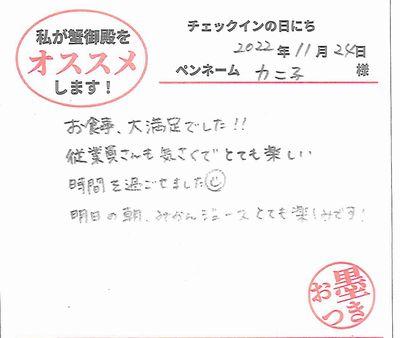 私が蟹御殿を
オススメ
します！
チェックインの日にち
2022年 11月 24日
ペンネーム カニ子 様
お食事、大満足でした!!
従業員さんも気さくでとても楽しい
時間を過ごせました☺
明日の朝、みかんジュースとても楽しみです!
お墨つき